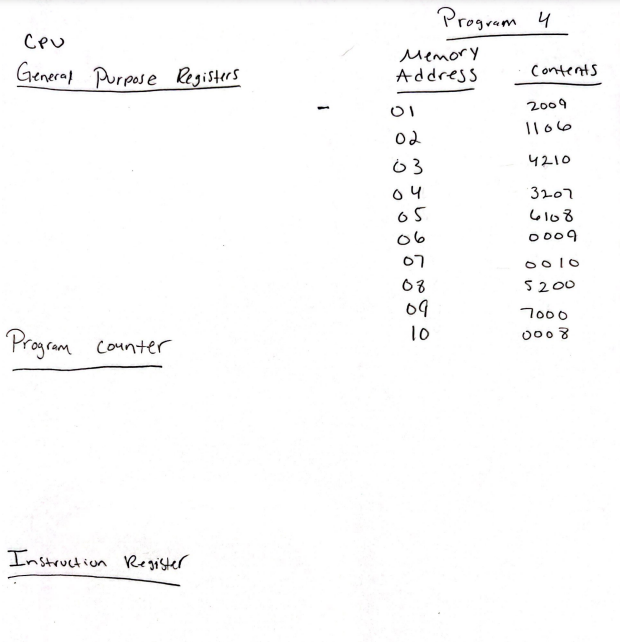 Program 4
CPU
General Purpose Registers
Memory
Address Contents
01 2009
02 1106
03 4210
04 3207
05 6108
06 0009
07 0010
08 5200
09 7000
10 0008
Program counter
Instruction Register